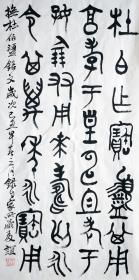 杜白乍寶盨其用
享孝于皇申且考于
好倗友用𠦪壽匄永
令其萬年永寶用
杜伯盨銘文歲次己丑早春三月